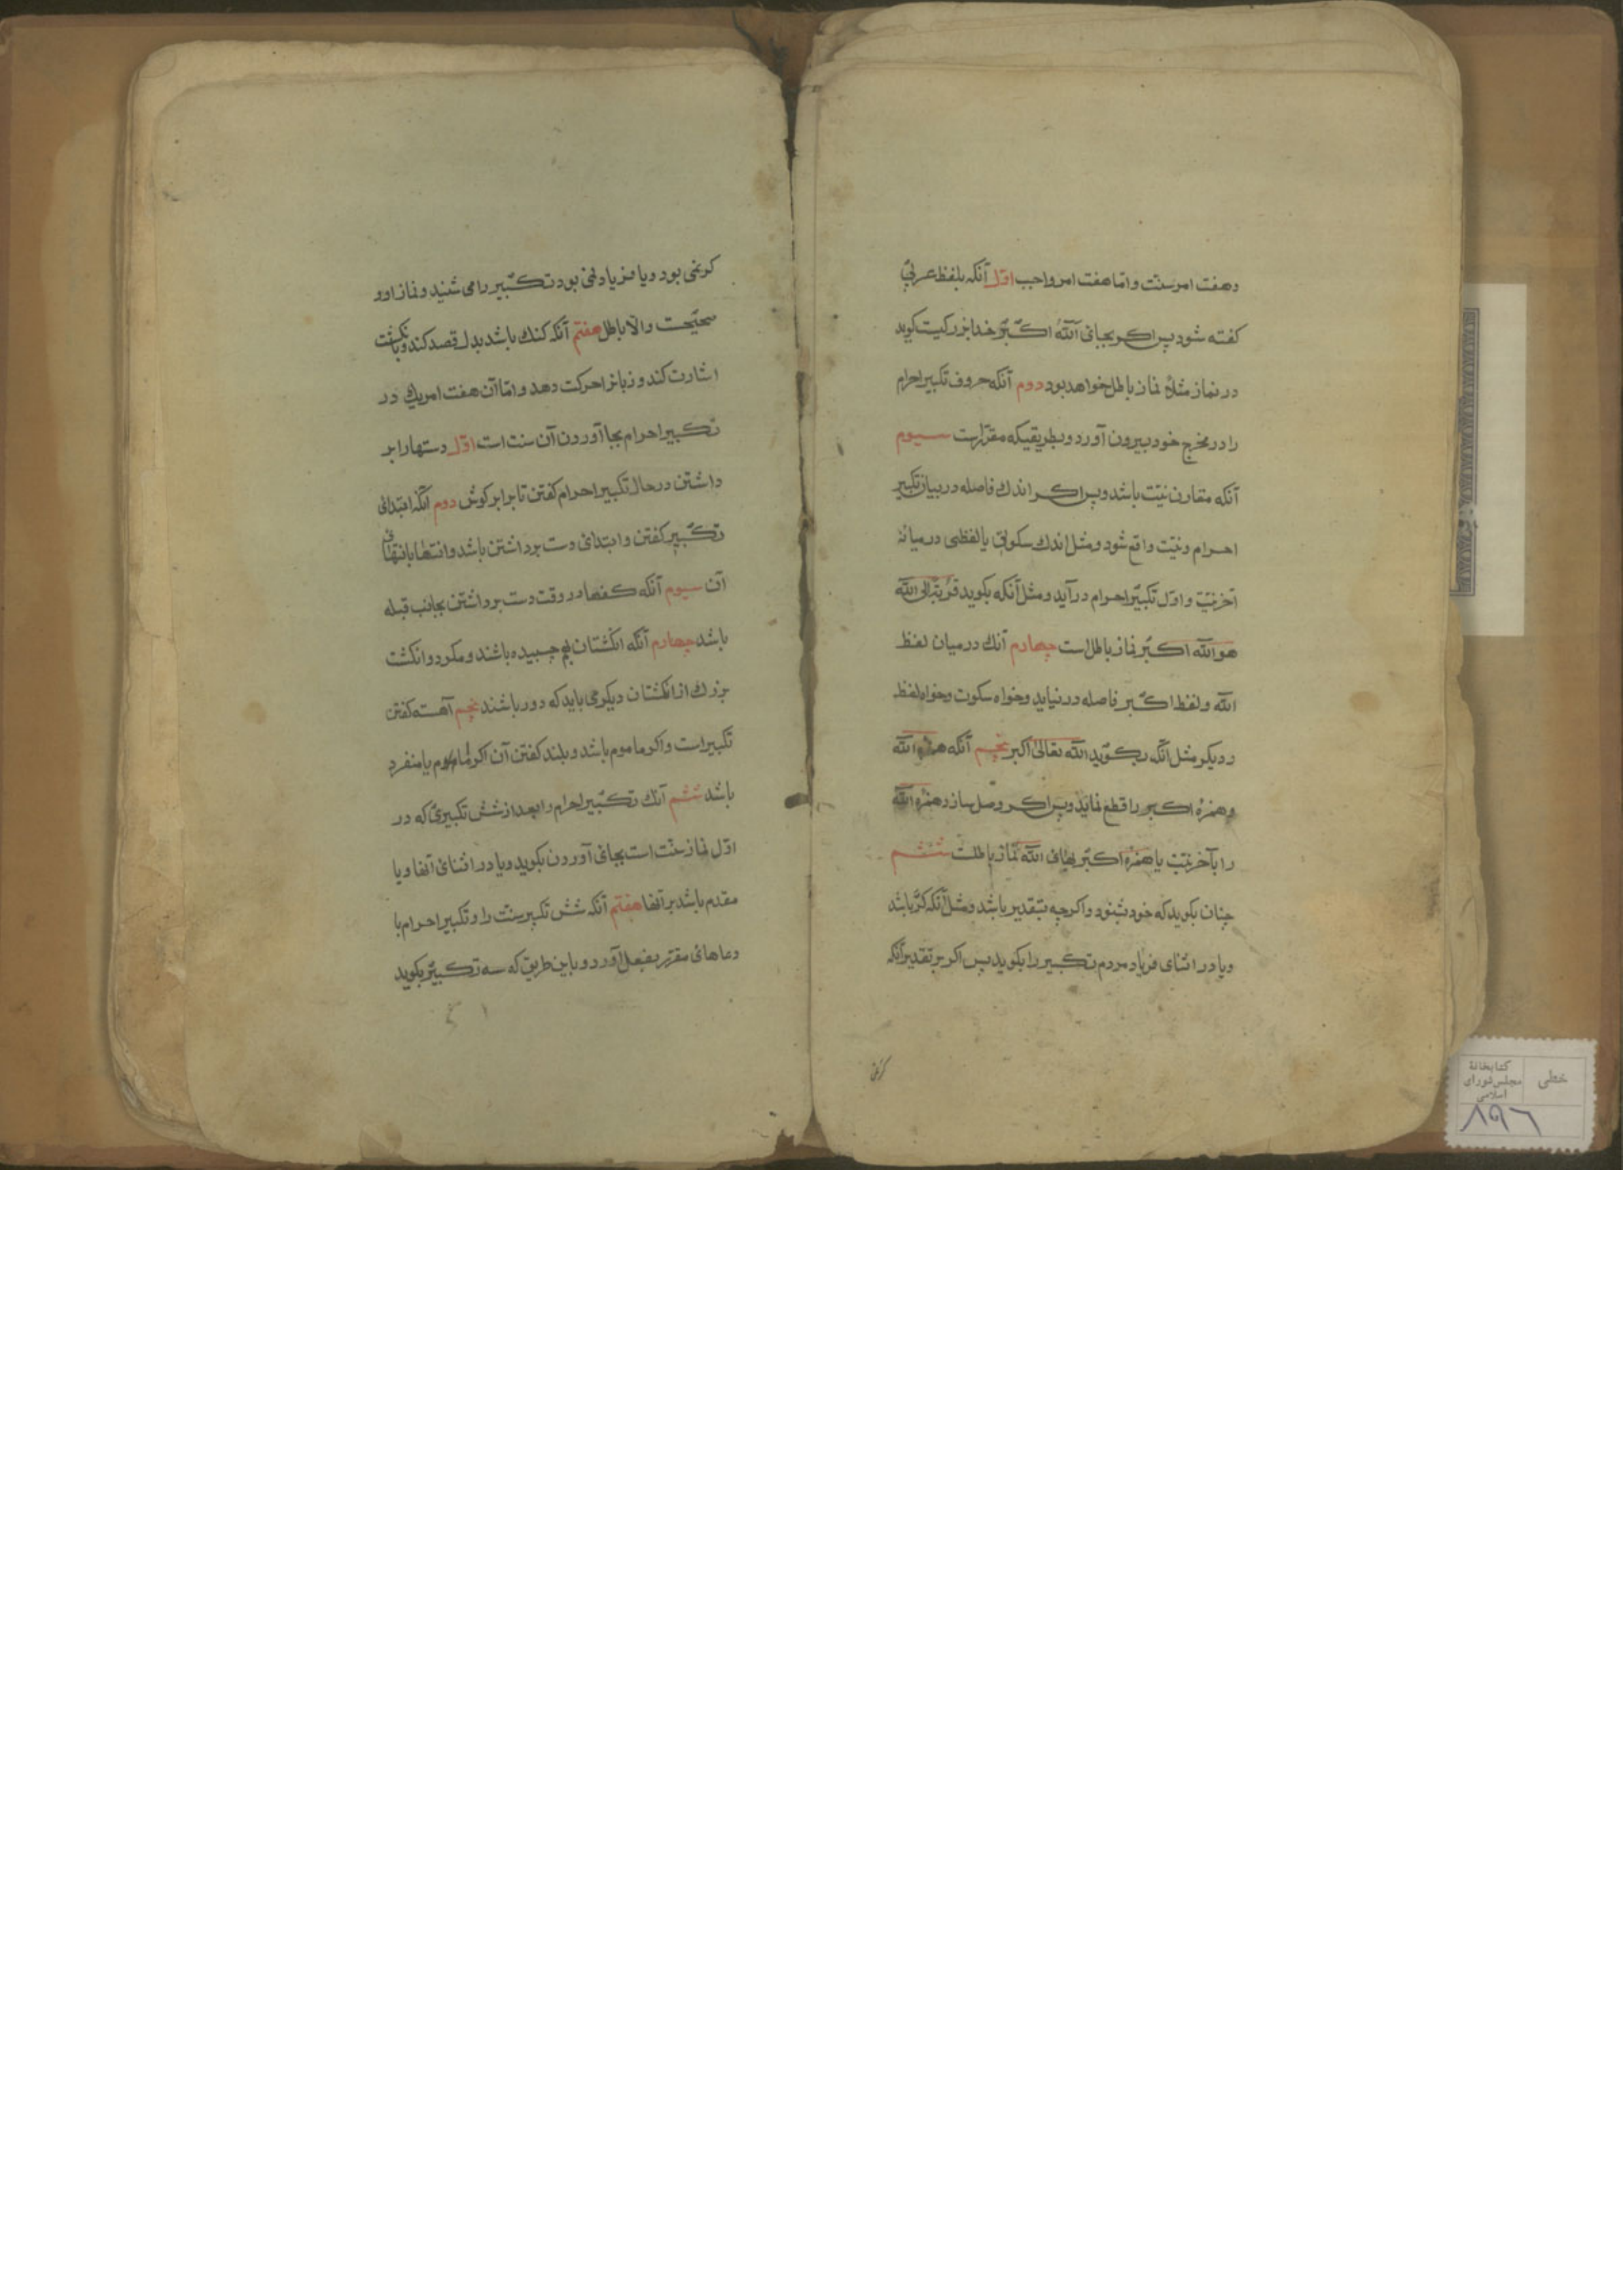 وهفت امر سنت واما هفت امر واجب اول آنکه بلفظ عربی
کفته شود پس اکر بجای اللّه اکبر خدا بزرکیست کوید
در نماز مثلاً نماز باطل خواهد بود دوم آنکه حروف تکبیر احرام
را در مخرج خود بیرون آورد و بطریقیکه مقرّرست سیوم
آنکه مقارن نیّت باشد و پس اکر اندک فاصله در میان تکبیر
احرام و نیّت واقع شود و مثل اندک سکوتی یا لفظی در میانهٔ
آخر نیّت و اوّل تکبیر احرام در آید و مثل آنکه بکوید قربة الی اللّه
هو اللّه اکبر نماز باطل است چهارم آنک در میان لفظ
اللّه و لفظ اکبر فاصله در نیاید و خواه سکوت و خواه لفظ
ردیکر مثل آنکه بکوید اللّه تعالی اکبر پنجم آنکه همزه اللّه
و همزهٔ اکبر را قطع نماید و پس اکر وصل سازد همزه اللّه
را بآخر نیّت یا همزه اکبر بهای اللّه نماز باطلست ششم
چنان بکوید که خود شنود و اکرچه بتقدیر باشد و مثل آنکه کر باشد
ویا در اثنای فریاد مردم تکبیر را بکوید پس اکر بر تقدیر آنکه
کر نمی بود ویا فریاد نمی بود تکبیر را می شنید و نماز او
صحیحست والّا باطل هفتم آنکه کنک باشد بدل قصد کند و بانکشت
اشارت کند و زبانرا حرکت دهد و امّا آن هفت امر یک در
تکبیر احرام بجا آوردن آن سنت است اوّل دستها را بر
داشتن در حال تکبیر احرام کفتن تا برابر کوش دوم آنکه ابتدای
تکبیر کفتن و ابتدای دست برداشتن باشد و انتها بانتهای
آن سیوم آنکه کفها در وقت دست برداشتن بجانب قبله
باشد چهارم آنکه انکشتان بهم چسبیده باشند و مکر دو انکشت
بزرک از انکشتان دیکر می باید که دور باشند پنجم آهسته کفتن
تکبیر است و اکر ماموم باشد و بلند کفتن آن اکر امام یا منفرد
باشد ششم آنک تکبیر احرام را بعد از شش تکبیری که در
اوّل نماز سنّت است بجای آوردن بکوید ویا در اثنای آنها ویا
مقدم باشد بر آنها هفتم آنکه شش تکبیر سنّت را و تکبیر احرام با
دعاهای مقرّر بفعل آورد و باین طریق که سه تکبیر بکوید
خطی
کتابخانهٔ
مجلس شورای
اسلامی
۸۹۶